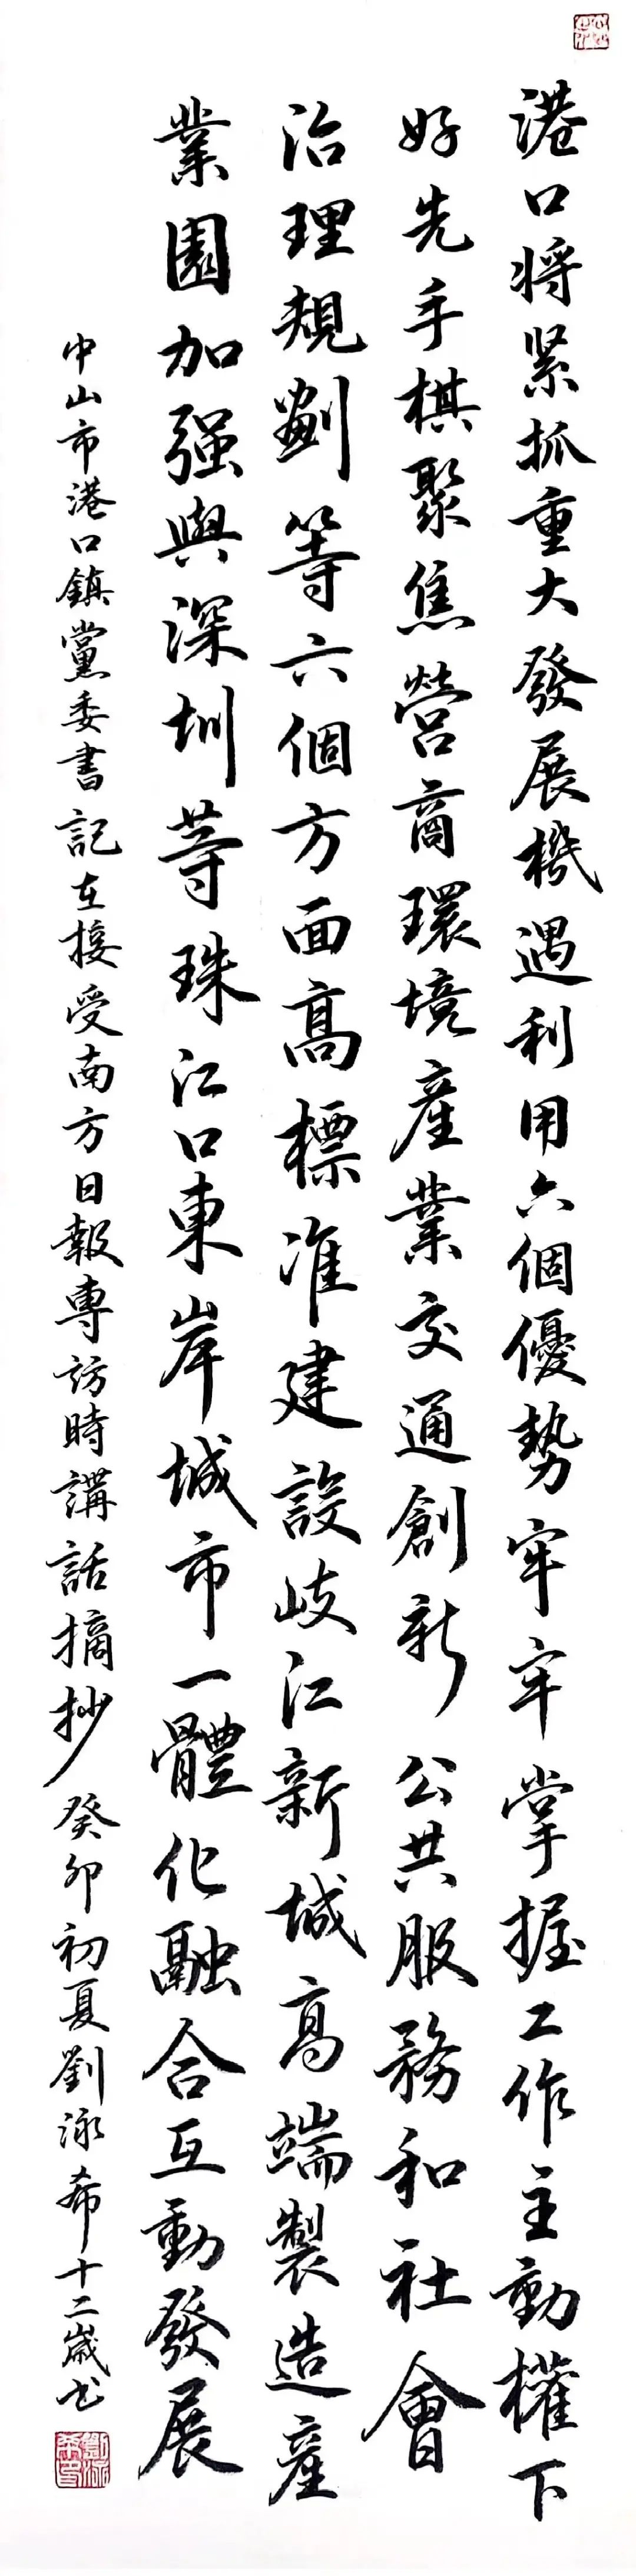 港口将紧抓重大發展機遇利用六個優勢牢牢掌握工作主動權下
好先手棋聚焦營商環境產業交通創新公共服務和社會
治理規劃等六個方面高標准建設岐江新城高端製造產
業園加强與深圳等珠江口東岸城市一體化融合互動發展
中山市港口鎮黨委書記在接受南方日報專訪時講話摘抄癸卯初夏劉泳希十二歲书